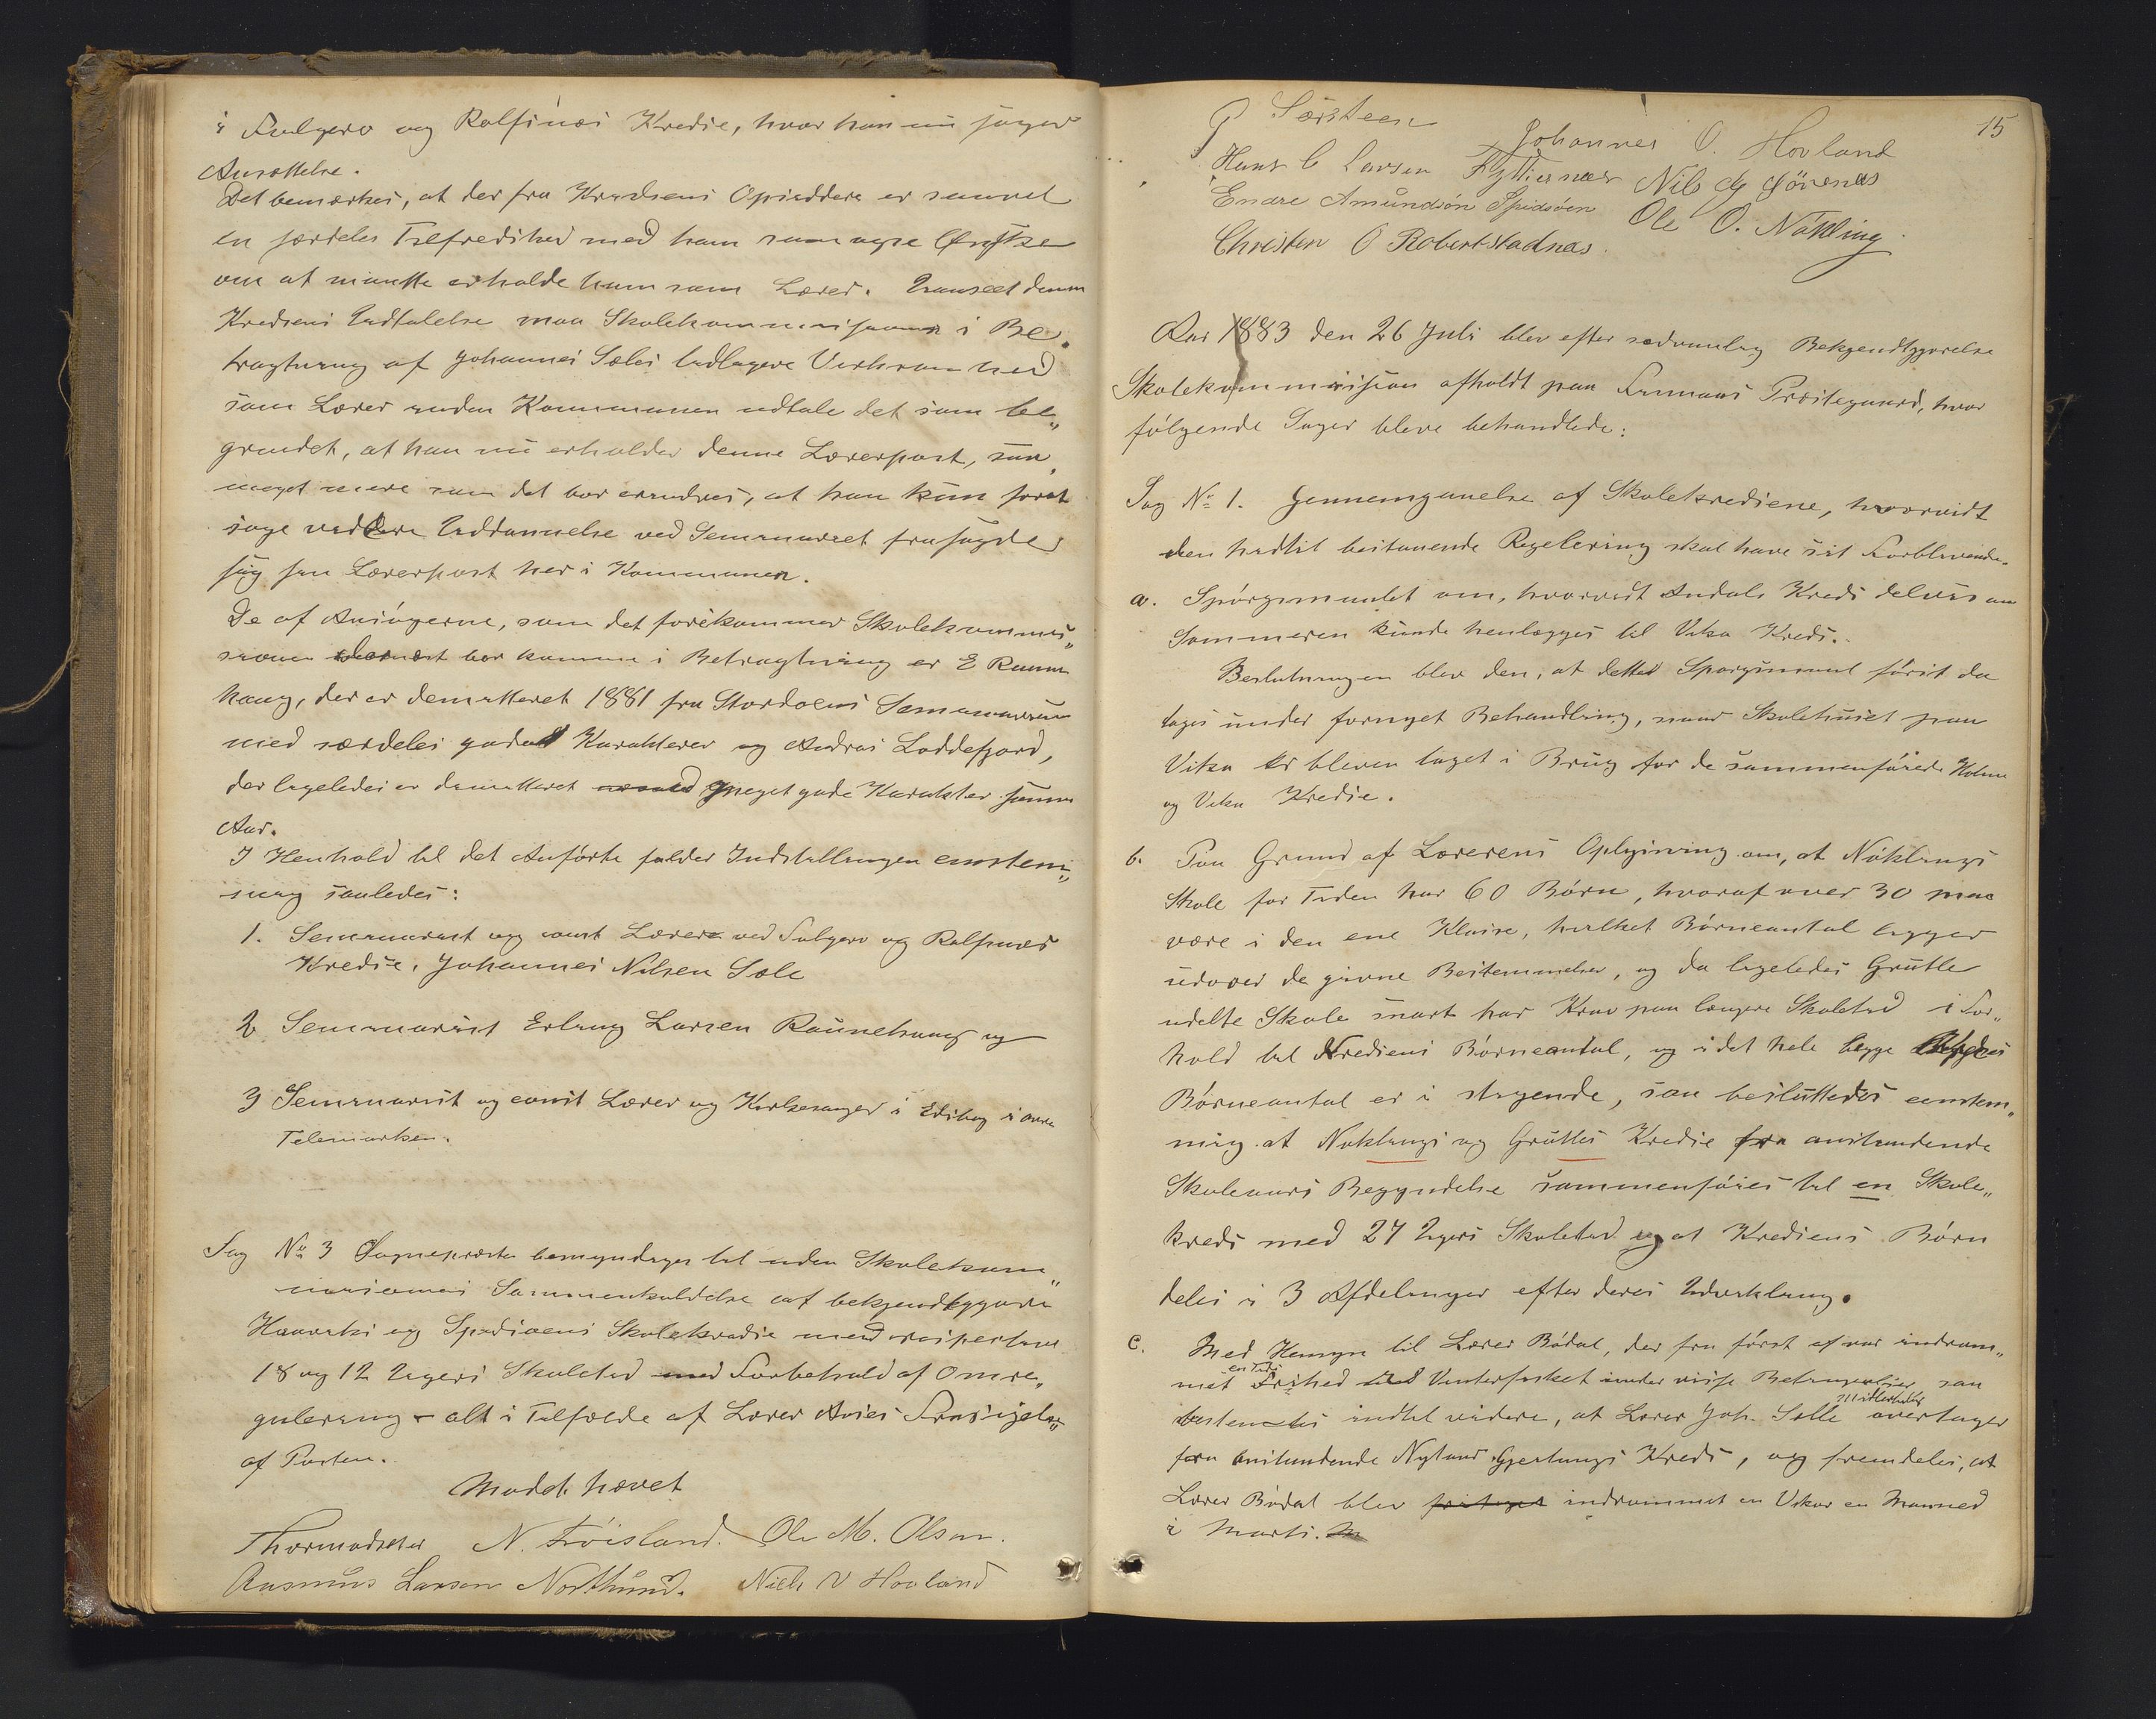 i Fulgero og Rolfsnes Kredse, hvor han nu søger
Ansættelse.
Det bemærkes, at der fra Kredsens Opsiddere er
en særdeles Tilfredshed med ham samt
om at maatte erholde ham som Lærer. Uanseet denne
Kredsens Udtalelse maa Skolekommissionen i Be-
tragtning af Johannes Sæles tidligere Virksomhed
som Lærer inden Kommunen udtale det som be„
grundet, at han nu erholder denne Lærerpost, saa
meget mere som det bør erindres, at han kun for at
søge videre Uddannelse ved Seminariet frasagde
sig sin Lærerpost her i Kommunen.
De af Ansøgerne, som det forekommer Skolekommis„
sionen dernæst bør komme i Betragtning er E Raune
haug, der er demitteret 1881 fra Stordøens Seminarium
med særdeles gode Karakterer og Andreas Loddefjord,
der ligeledes er demitteret meget gode Karakter samme
Aar.
I Henhold til det Anførte falder Indstillingen eenstem„
mig saaledes:
1. Seminarist og const Lærer ved Fulgero og Rolfsnes
Kredse, Johannes Nilsen Sæle
2 Seminarist Erling Larsen Raunehaug og
3 Seminarist og const Lærer og Kirkesanger i i øvre
Telemarken.
Sag No 3 Sognepræsten bemyndiges til uden Skolekom„
missionens Sammenkaldelse at bekjendtgjøre
og Spidsøens Skolekredse med respective
18 og 12 Ugers Skoletid med Forbehold af Omre„
gulering - alt i Tilfælde af Lærer Aases Frasigelse
af Posten.
Mødet hævet
Thormodsæter N. Frøisland. Ole M. Olsen.
Rasmus Larson Nordhund. Niels N Hovland
15
P Særsteen
Johannes O. Hovland
Hans C Larsen Fylliesnes Nils
Endre Amundsøn Spidsøen Ole O. Nøkling
Christen O Robertstadnæs.
Aar 1883 den 26 Juli blev efter sædvanlig Bekjendtgjørelse
Skolekommission afholdt paa Finnaas Præstegaard, hvor
følgende Sager bleve behandlede:
Sag No 1. Gjennemgaaelse af Skolekredsene, hvorvidt
den hidtil bestaaende Regulering skal have sit Forblivende.
a. Spørgsmaalet om, hvorvidt Andals Kreds delvis om
Sommeren kunde henlægges til Vika Kreds.
Beslutningen blev den, at dette Spørgsmaal først da
tages under fornyet Behandling, naar Skolehuset paa
Vika er bleven taget i Brug for de sammenførede Holme
og Vika Kredse.
b. Paa Grund af Lærerens Oplysning om, at Nøklings
Skole for Tiden har 60 Børn, hvoraf over 30 maa
være i den ene Klasse, hvilket Børneantal ligger
udover de givne Bestemmelser, og da ligeledes Grutle
udelte Skole snart har Krav paa længere Skoletid i For„
hold til Kredsens Børneantal, og i det hele begge
Børneantal er i stigende, saa besluttedes eenstem„
mig at Nøklings og Grutles Kredse fra anstundende
Skoleaars Begyndelse sammenføres til en Skole„
kreds med 27 Ugers Skoletid og at Kredsens Børn
deles i 3 Afdelinger efter deres Udvikling.
c. Med Hensyn til Lærer Bødal, der fra først af var indrøm„
met en Tids Frihed til Vinterfisket under visse Betingelser, saa
bestemtes indtil videre, at Lærer Joh. Sælle midlertidig overtager
fra anstundende Nytaar Gjerlings Kreds, og fremdeles, at
Lærer Bødal blev indrømmet en Vikar en Maaned
i Marts.